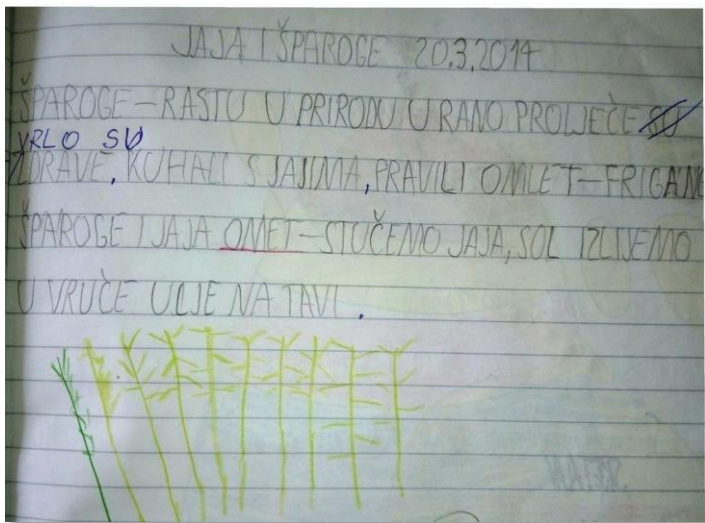 JAJA I ŠPAROGE 20.3.2014
ŠPAROGE-RASTU U PRIRODU U RANO PROLJEČE SU
VRLO SU
ZDRAVE. KUHALI S JAJIMA, PRAVILI OMLET-FRIGANE
ŠPAROGE I JAJA OMET-STUČEMO JAJA, SOL IZLIJEMO
U VRUČE ULJE NA TAVI.